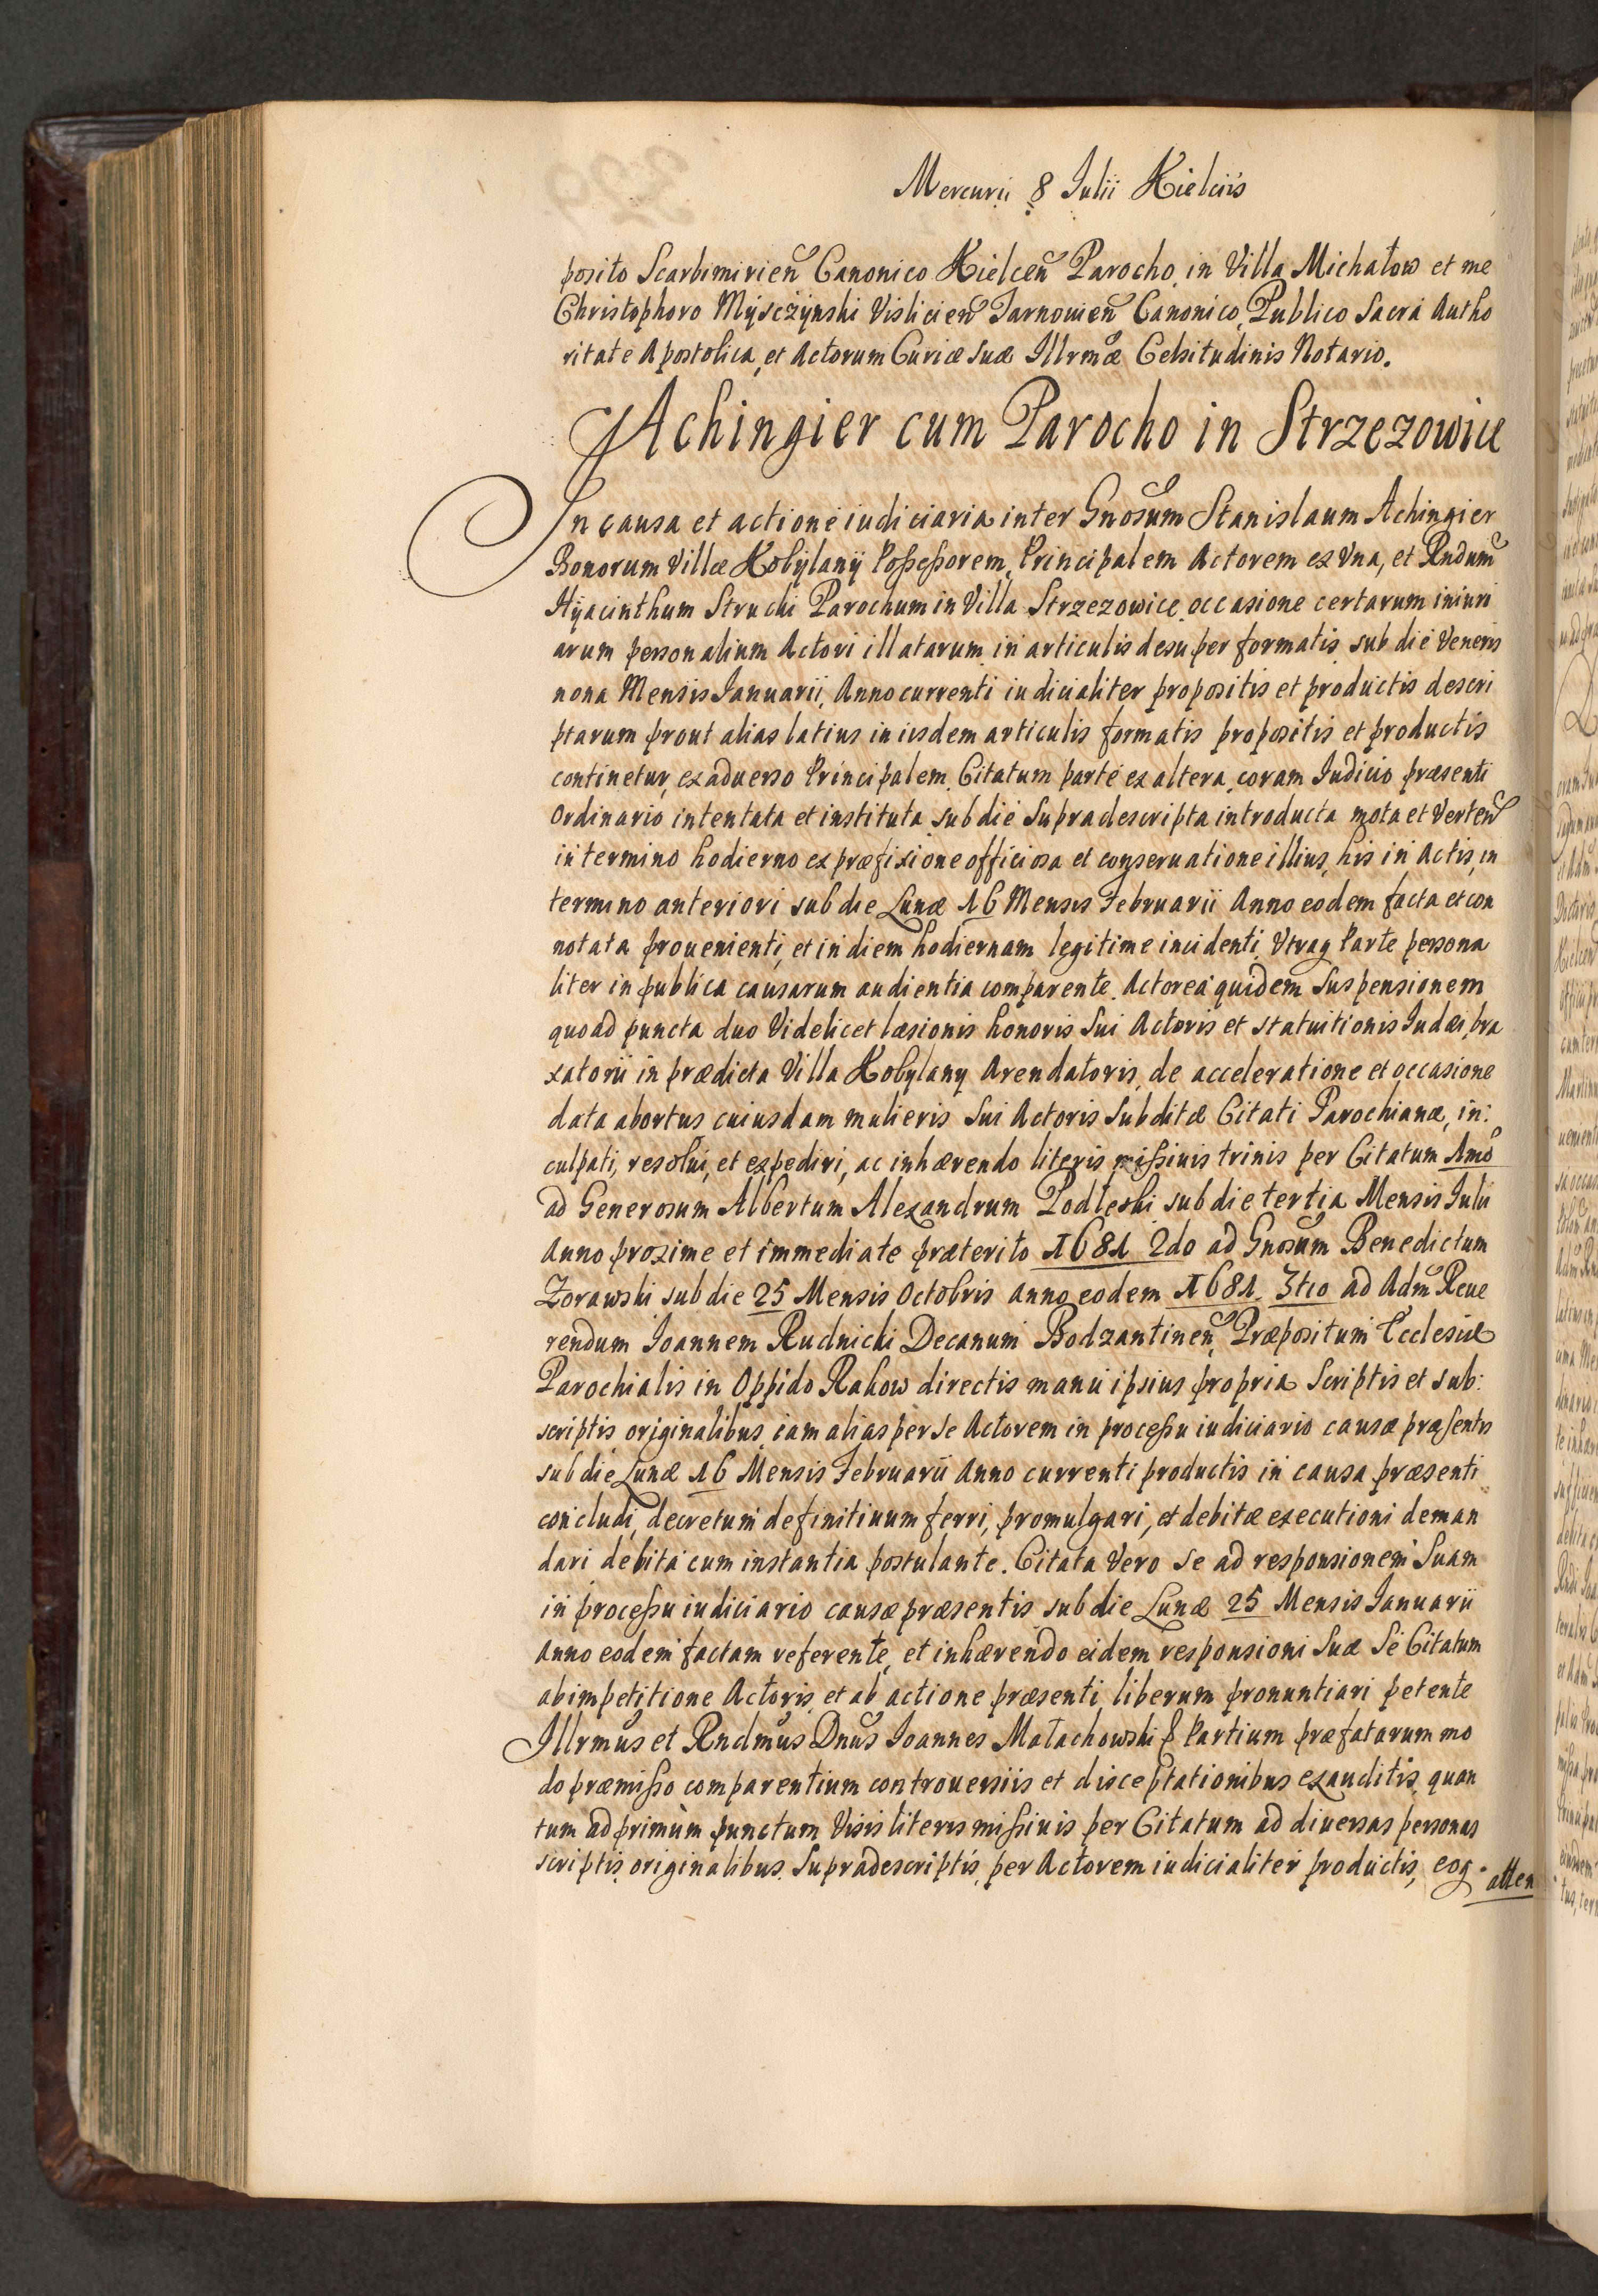 Mercurii 8 Iulii Kielciis
posito Scarbimirien Canonico Kielcen Parocho in Villa Michałow et me
Christophoro Mysczynski Vislicien Tarnovien Canonico, Publico Sacra Autho
ritate Apostolica, et Actorum Curiæ suæ Illrmæ Celsitudinis Notario.
Achingier cum Parocho in Strzezowice
In causa et actione iudiciaria inter Gnosum Stanislaum Achingier
Bonorum Villæ Kobylany Poßeßorem, Principalem Actorem ex Vna, et Rndum
Hyacinthum Strucki Parochum in Villa Strzezowice occasione certarum iniuri
arum personalium Actori illatarum in articulis desuper formatis sub die Veneris
nona Mensis Ianuarii, Anno currenti iudicialiter propositis et productis descri
ptarum prout alias latius in iisdem articulis formatis propositis et productis
continetur, ex aduerso Principalem Citatum parte ex altera, coram Iudicio præsenti
Ordinario intentata et instituta sub die Supradescripta introducta mota et Verten
in termino hodierno ex præfixione officiosa et conseruatione illius, his in Actis, in
termino anteriori sub die Lunæ 16 Mensis Februarii Anno eodem facta et con
notata prouenienti, et in diem hodiernam legitime incidenti, Vtraq Parte persona
liter in publica causarum audientia comparente. Actorea quidem Suspensionem
quoad puncta duo Videlicet læsionis honoris Sui Actoris et statuitionis Iudæi, bra
xatorii in prædicta Villa Kobylany Arendatoris, de acceleratione et occasione
data abortus cuiusdam mulieris Sui Actoris Subditæ Citati Parochianæ, in:
culpati, resolui, et expediri, ac inhærendo literis mißiuis trinis per Citatum 1mo
ad Generosum Albertum Alexandrum Podleski sub die tertia Mensis Iulii
Anno proxime et immediate præterito 1681 2do ad Gnosum Benedictum
Zorawski sub die 25 Mensis Octobris Anno eodem 1681. 3tio ad Adm Reue
rendum Ioannem Rudnicki Decanum Bodzantinen, Præpositum Ecclesiæ
Parochialis in Oppido Rakow directis manu ipsius propria Scriptis et sub:
scriptis originalibus iam alias per se Actorem in proceßu iudiciario causæ præsentis
sub die Lunæ 16 Mensis Februarii Anno currenti productis in causa præsenti
concludi, decretum definitiuum ferri, promulgari, et debitæ executioni deman
dari debita cum instantia postulante. Citata Vero se ad responsionem Suam
in proceßu iudiciario causæ præsentis sub die Lunæ 25 Mensis Ianuarii
Anno eodem factam referente, et inhærendo eidem responsioni Suæ Se Citatum
ab impetitione Actoris et ab actione præsenti liberum pronuntiari petente
Illrmus et Rndmus Dnus Ioannes Małachowski Partium præfatarum mo
do præmißo comparentium controuersiis et disceptationibus exauditis quan
tum ad primum punctum Visis literis mißiuis per Citatum ad diuersas personas
scriptis originalibus Supradescriptis, per Actorem iudicialiter productis, eoq
atten